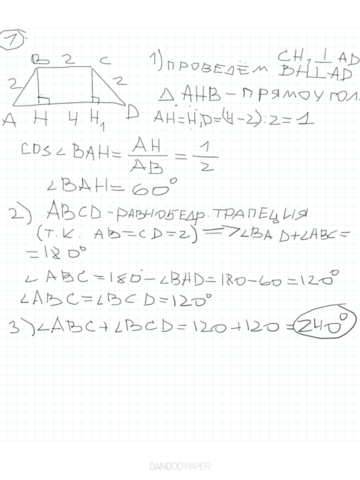 1
B 2 C
2 2
A H 4 H₁ D
1) ПРОВЕДЁМ CH₁⊥AD
BH⊥AD
△AHB - ПРЯМОУГОЛ.
AH=H₁D=(4-2):2=1
COS∠BAH=AH/AB=1/2
∠BAH=60°
2) ABCD-РАВНОБЕДР.ТРАПЕЦИЯ
(Т.К. AB=CD=2) => ∠BAD+∠ABC=
=180°
∠ABC=180-∠BAD=180-60=120°
∠ABC=∠BCD=120°
3) ∠ABC+∠BCD=120+120=240°
DAMOOOPAPER